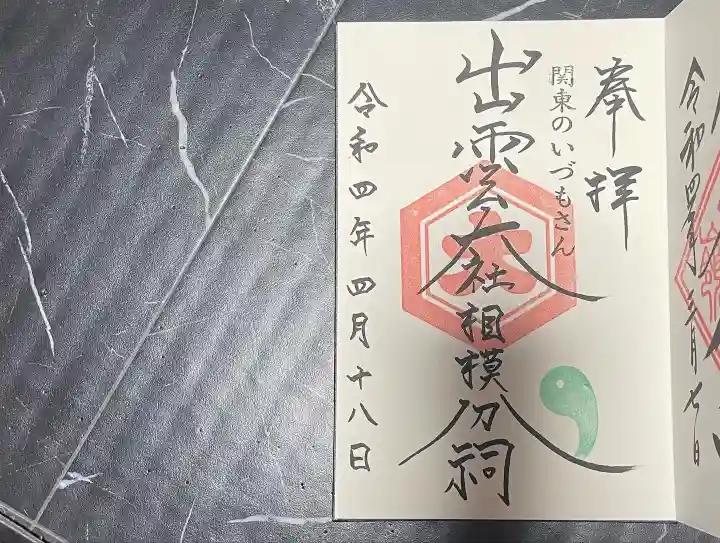 奉拝
関東のいづもさん
出雲大社相模分祠
令和四年四月十八日
令和四年三月七日